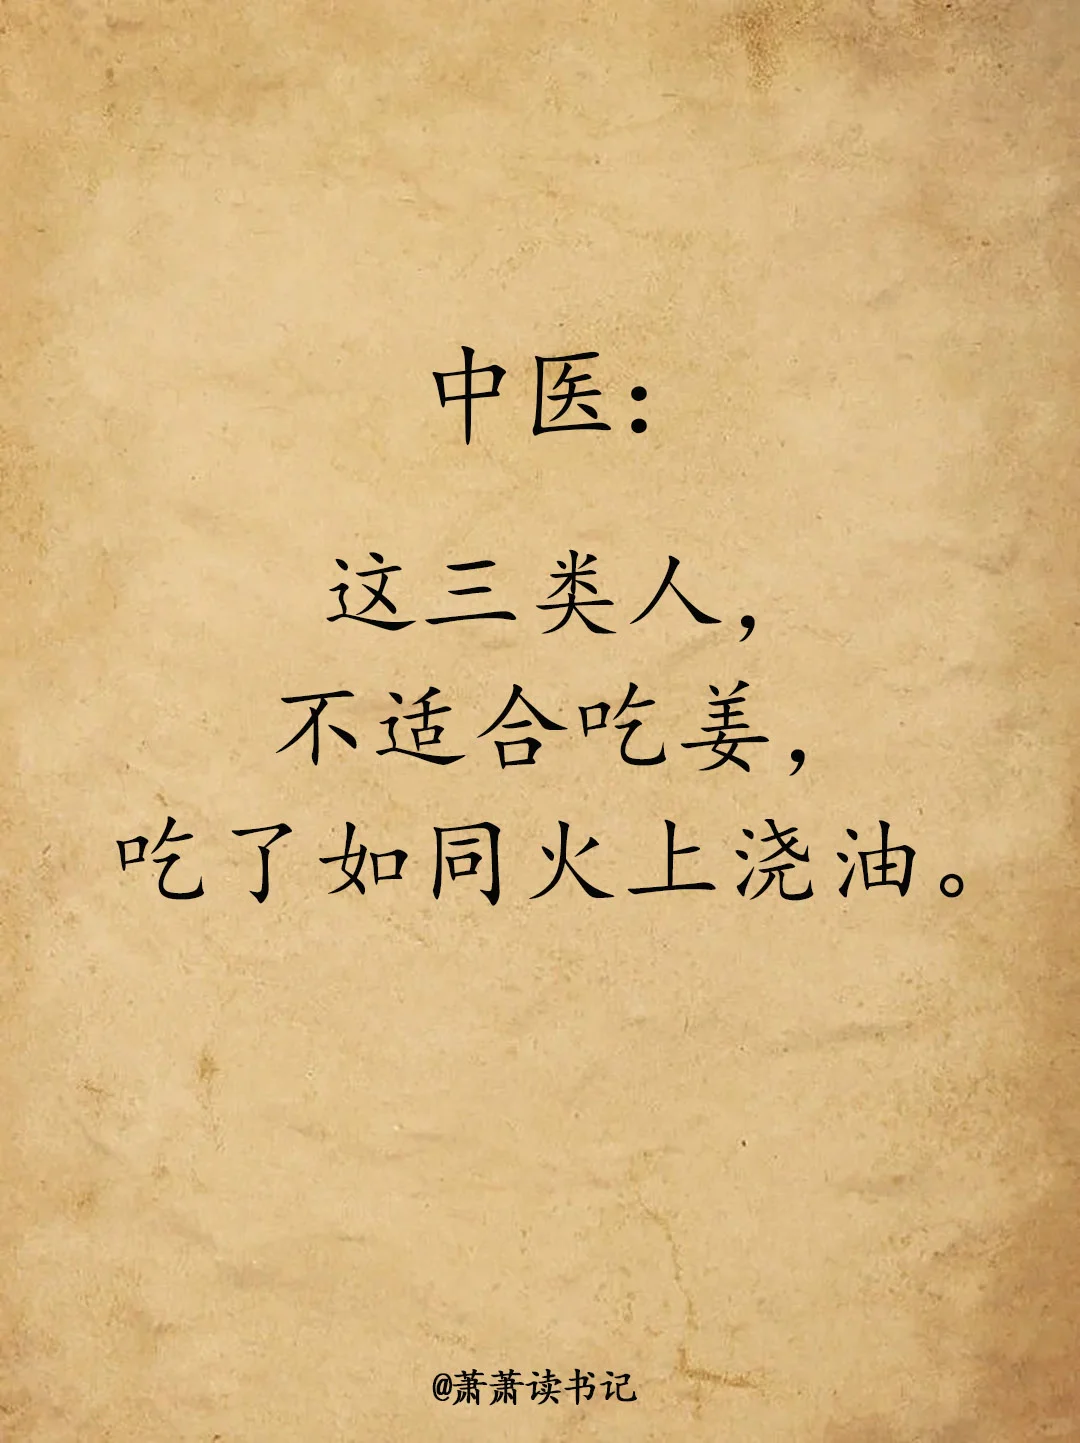 中医：
这三类人，
不适合吃姜，
吃了如同火上浇油。
@萧萧读书记